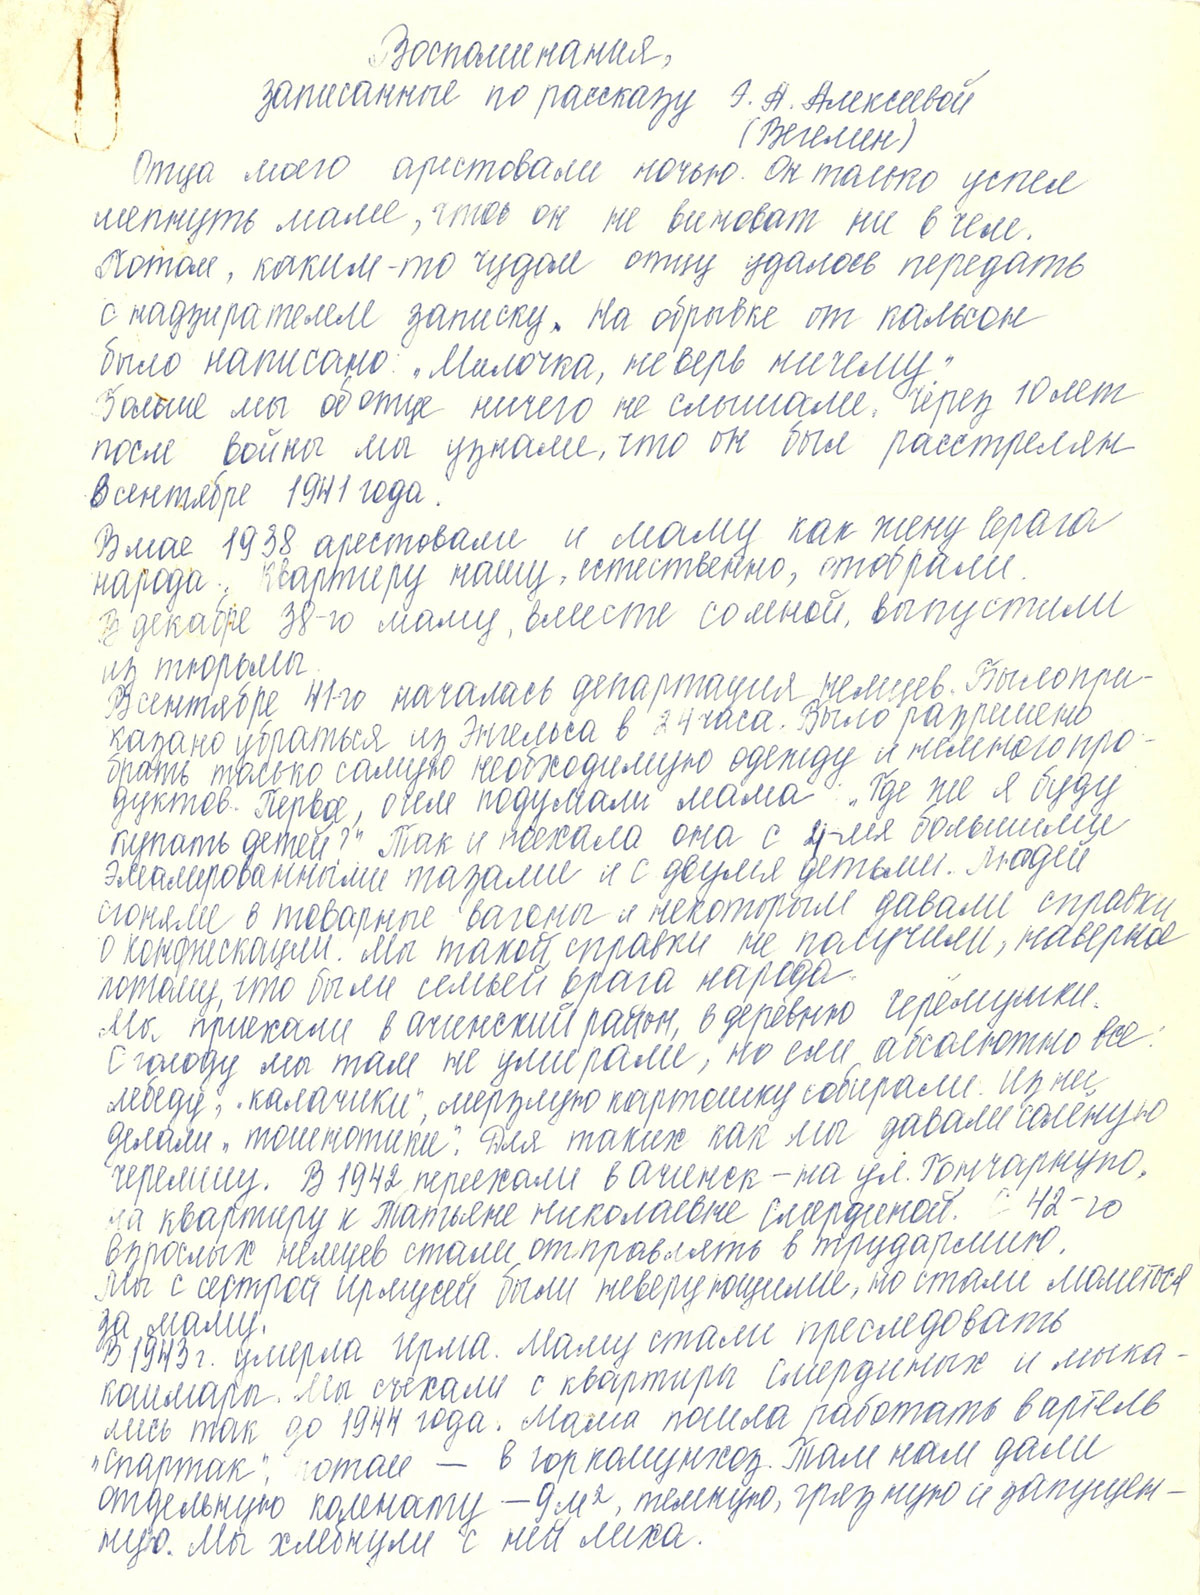 Воспоминания,
записанные по рассказу Э. А. Алексеевой
(Вегелин)
Отца моего арестовали ночью. Он только успел
шепнуть маме, что он не виноват ни в чем.
Потом, каким-то чудом отцу удалось передать
с надзирателем записку. На обрывке от кальсон
было написано: „Милочка, не верь ничему"
Больше мы об отце ничего не слышали. Через 10 лет
после войны мы узнали, что он был расстрелян
в сентябре 1941 года.
В мае 1938 арестовали и маму как жену врага
народа. Квартиру нашу, естественно, отобрали.
В декабре 38-го маму, вместе со мной, выпустили
из тюрьмы.
В сентябре 41-го началась департация немцев. Было при-
казано убраться из Энгельса в 24 часа. Было разрешено
брать только самую необходимую одежду и немного про-
дуктов. Первое, о чем подумали мама: „Где же я буду
купать детей?" Так и поехала она с 4-мя большими
эмалированными тазами и с двумя детьми. Людей
сгоняли в товарные вагоны и некоторым давали справки
о конфискации. Мы такой справки не получили, наверное
потому, что были семьей врага народа.
Мы приехали в ачинский район, в деревню Черёмушки.
С голоду мы там не умирали, но ели абсолютно все:
лебеду, „калачики", мерзлую картошку собирали. Из неё
делали „тошнотики". Для таких как мы давали соленую
черемшу. В 1942 переехали в Ачинск – на ул. Гончарную,
на квартиру к Татьяне Николаевне Смердиной. С 42-го
взрослых немцев стали отправлять в трудармию.
Мы с сестрой Ирмусей были неверующими, но стали молиться
за маму.
В 1943 г. умерла Ирма. Маму стали преследовать
кошмары. Мы съехали с квартиры Смердиных и мыка-
лись так до 1944 года. Мама пошла работать в артель
„Спартак", потом – в горкомунхоз. Там нам дали
отдельную комнату – 9 м², темную, грязную и запущен-
ную. Мы хлебнули с ней лиха.